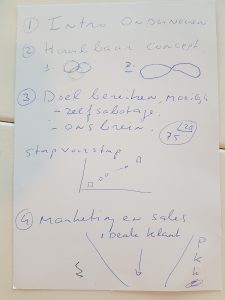 ① Intro Ondernemen
② Haalbaar concept
1: 2:
③ Doel bereiken, Moeilijk
- zelfsabotage.
- ons brein.
75
stap voor stap
④ Marketing en sales
ideale klant
P
K